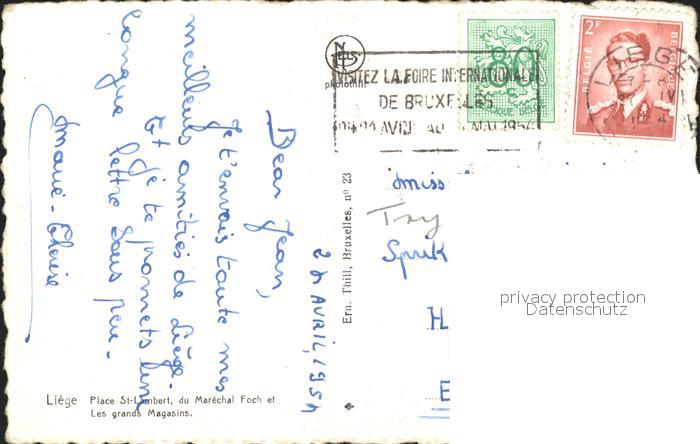 Dear Jean,
Je t'envois toute mes
meilleurs amitiés de Liège.
Et je te promets une
longue lettre sous peu.
Marie-Thérèse
24 AVRIL, 1954
Liège Place St-Lambert, du Maréchal Foch et
Les grands Magasins.
Ern. Thill, Bruxelles, nº 23
NELS
photothill
VISITEZ LA FOIRE INTERNATIONALE
DE BRUXELLES
AVRIL AU MAI 1954
80
2F
BELGIE
BELGIQUE
LIEGE
Miss
Try
Spuk
H
E
privacy protection
Datenschutz